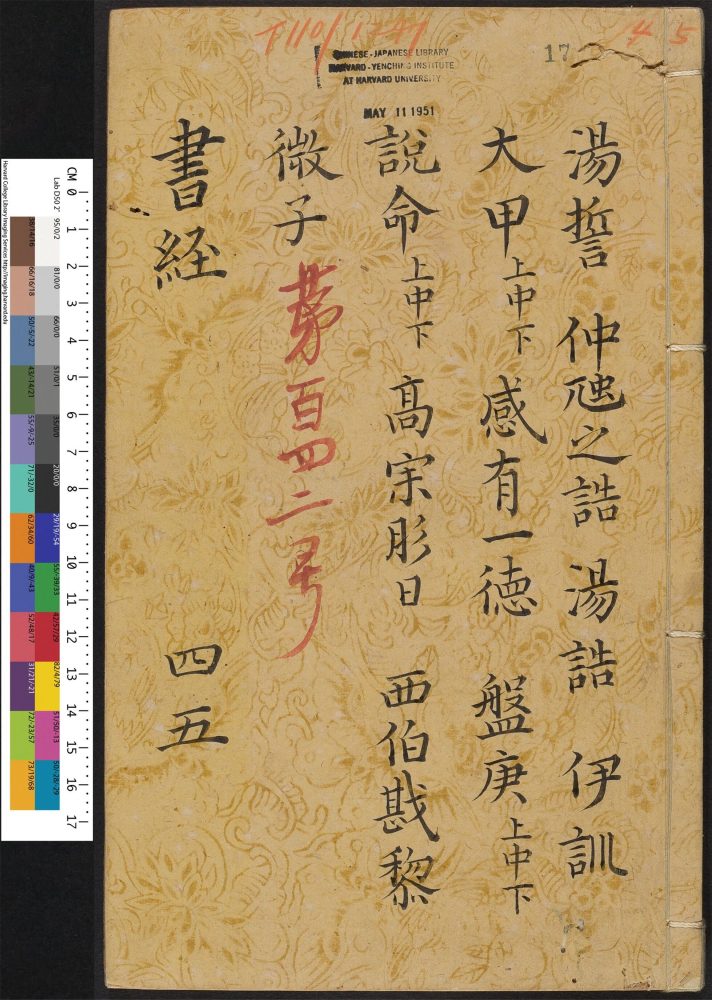 T 110/1747
CHINESE-JAPANESE LIBRARY
HARVARD-YENCHING INSTITUTE
AT HARVARD UNIVERSITY
MAY 11 1951
17
4 5
湯誓 仲虺之誥 湯誥 伊訓
大甲上中下 感有一德 盤庚上中下
說命上中下 高宗肜日 西伯戡黎
微子 苐百四二号
書経 四五
CM 0 1 2 3 4 5 6 7 8 9 10 11 12 13 14 15 16 17
Harvard College Library Imaging Services